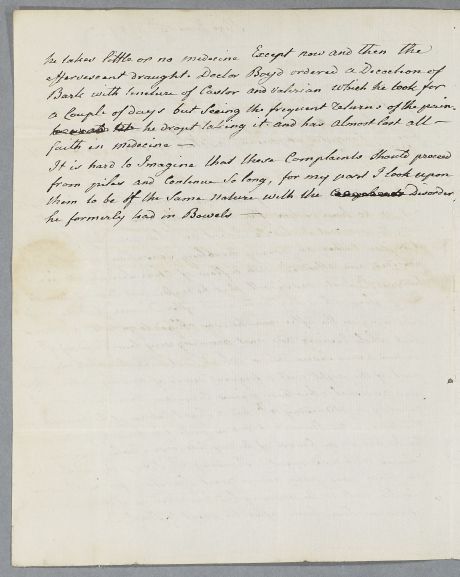 he takes little or no medicine Except now and then the
effervescent draught. Doctor Boyd ordered a Decoction of
Bark with tincture of Castor and valerian which he took for
a Couple of days but seeing the frequent returns of the pain
he dropt taking it and has almost lost all -
faith in medicine -
It is hard to Imagine that these Complaints should proceed
from piles and Continue so long, for my part I look upon
them to be of the same nature with the Complaints Disorder,
he formerly had in Bowels -